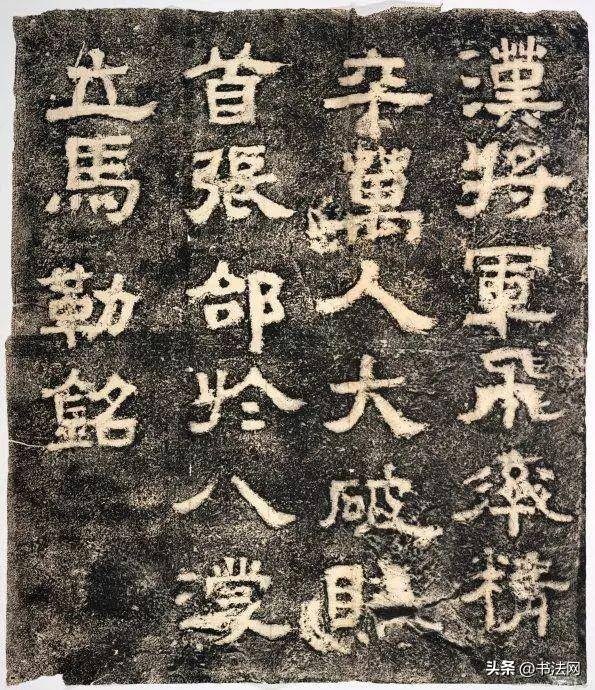 漢將軍飛率精
卒萬人大破賊
首張郃於八濛
立馬勒銘
头条 @书法网